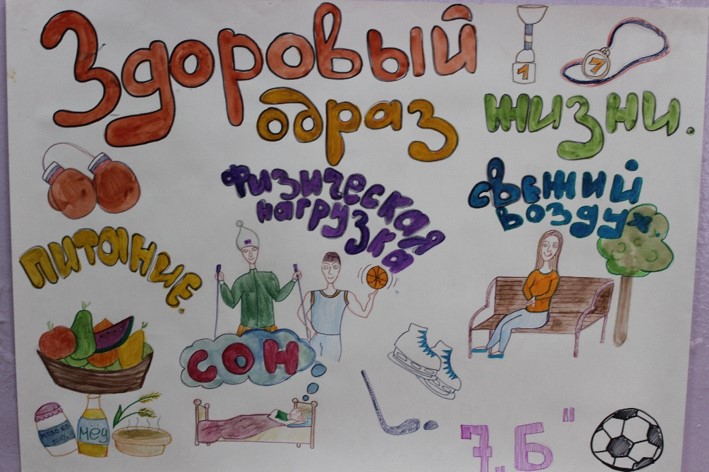 Здоровый
образ жизни.
1
1
Физическая
нагрузка.
свежий
воздух
Питание.
СОН
МОЛОКО
МЁД
7„Б"